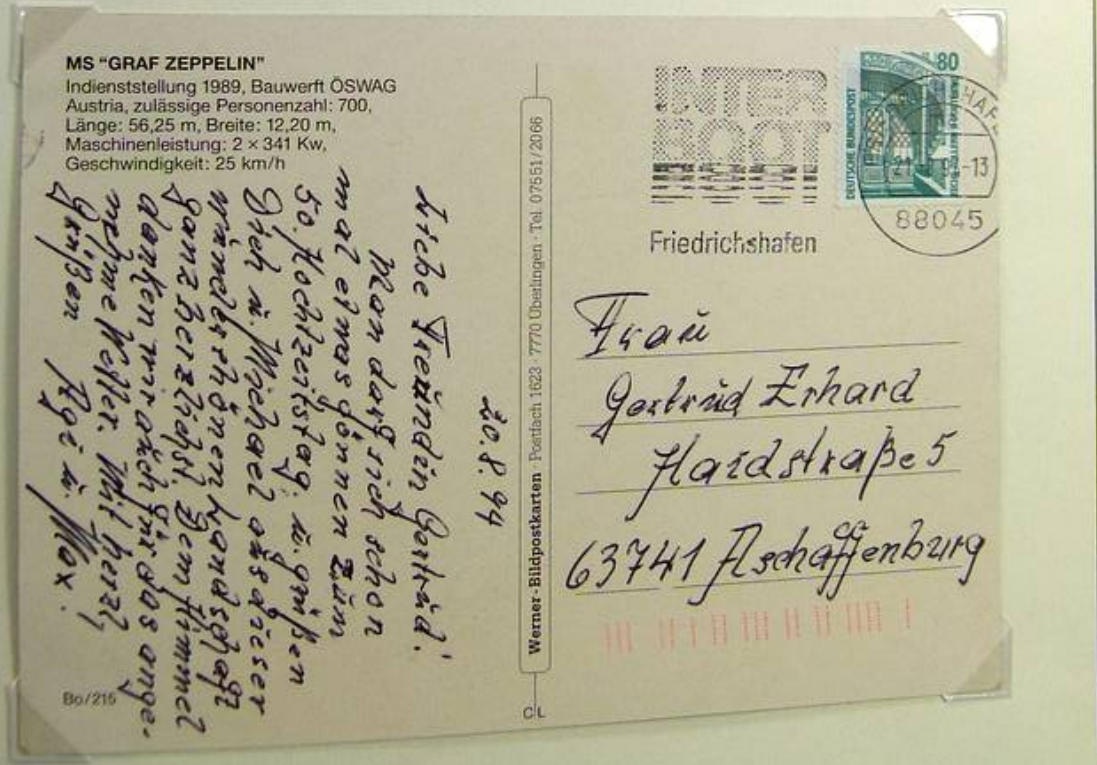 MS "GRAF ZEPPELIN"
Indienststellung 1989, Bauwerft ÖSWAG
Austria, zulässige Personenzahl: 700,
Länge: 56,25 m, Breite: 12,20 m,
Maschinenleistung: 2 × 341 Kw,
Geschwindigkeit: 25 km/h
20.8.94
Liebe Freundin Gertrud!
Man darf sich schon
mal etwas gönnen zum
50. Hochzeitstag. u. grüßen
Dich u. Michael aus dieser
wunderschönen Landschaft
ganz herzlichst. Dem Himmel
danken wir auch für das ange-
nehme Wetter. Mit herzl.
Grüßen Agi u. Max.
Bo/215
Werner-Bildpostkarten · Postfach 1623 · 7770 Überlingen · Tel. 07551/2066
CL
INTER
BOOT
Friedrichshafen
80
DEUTSCHE BUNDESPOST
88045
Frau
Gertrud Erhard
Haidstraße 5
63741 Aschaffenburg